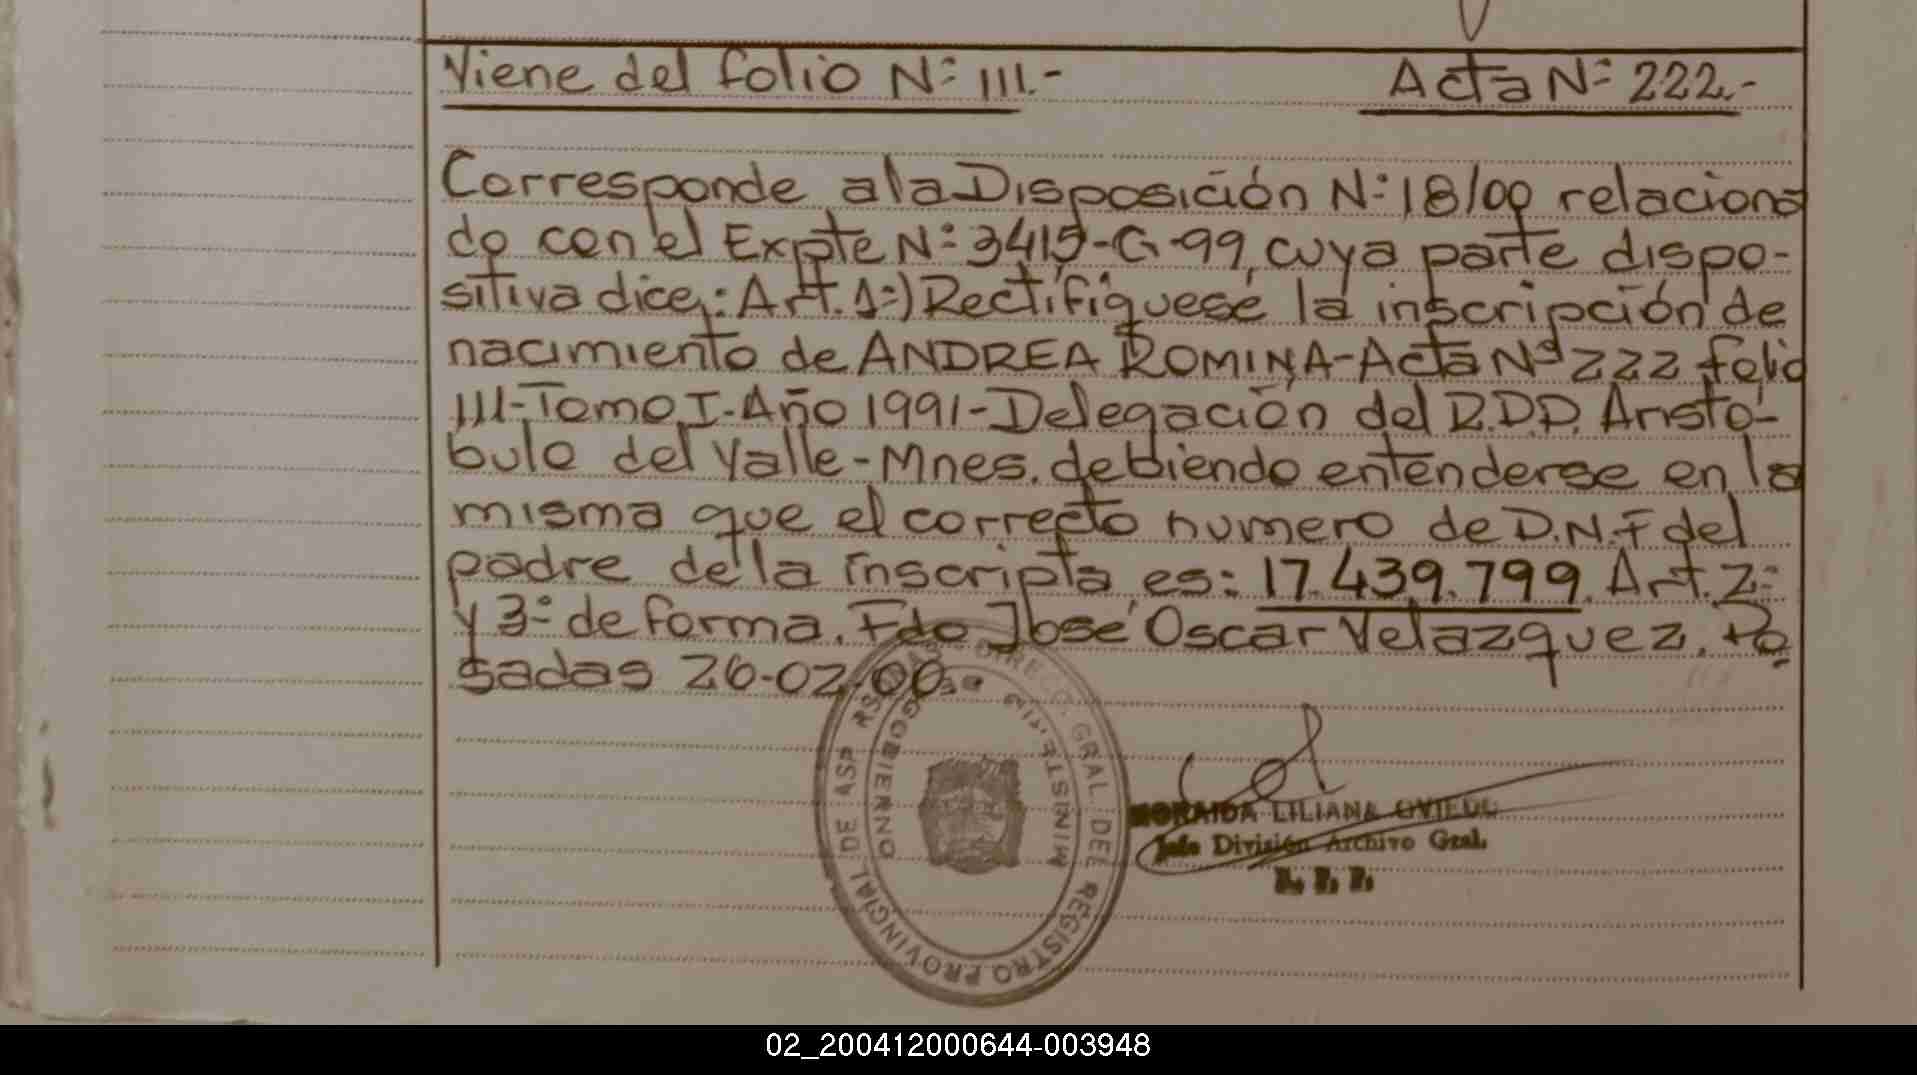 Viene del folio Nº 111.-
Acta Nº 222.-
Corresponde a la Disposición Nº 18/00 relaciona
do con el Expte Nº 3415-G-99, cuya parte dispo-
sitiva dice: Art. 1º) Rectifíquese la inscripción de
nacimiento de ANDREA ROMINA-Acta Nº 222 folio
111-Tomo I-Año 1991-Delegación del R.P.P. Aristó-
bulo del Valle-Mnes. debiendo entenderse en la
misma que el correcto numero de D.N.I del
padre de la inscripta es: 17.439.799. Art. 2º
y 3º de forma. Fdo José Oscar Velazquez. Po
sadas 26-02-00.
DIREC. GRAL. DEL REGISTRO PROVINCIAL DE
MINISTERIO DE GOBIERNO
MORAIDA LILIANA OVIEDO
Jefe División Archivo Gral.
02_200412000644-003948